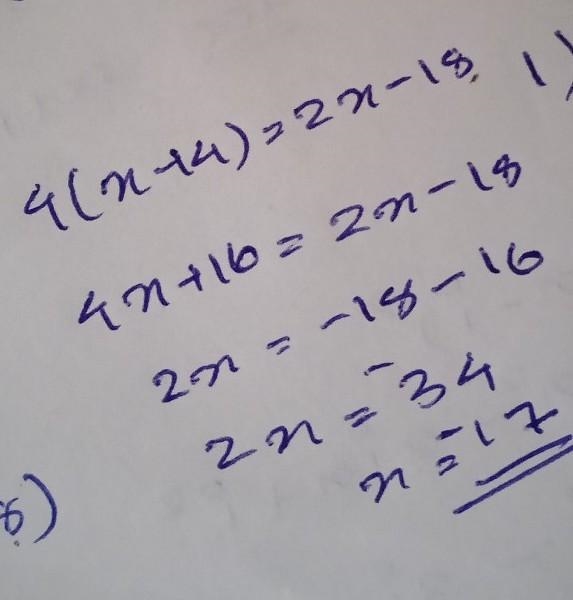 4(x+4)=2x-18
4x+16=2x-18
2x=-18-16
2x=-34
x=-17
1)
8)